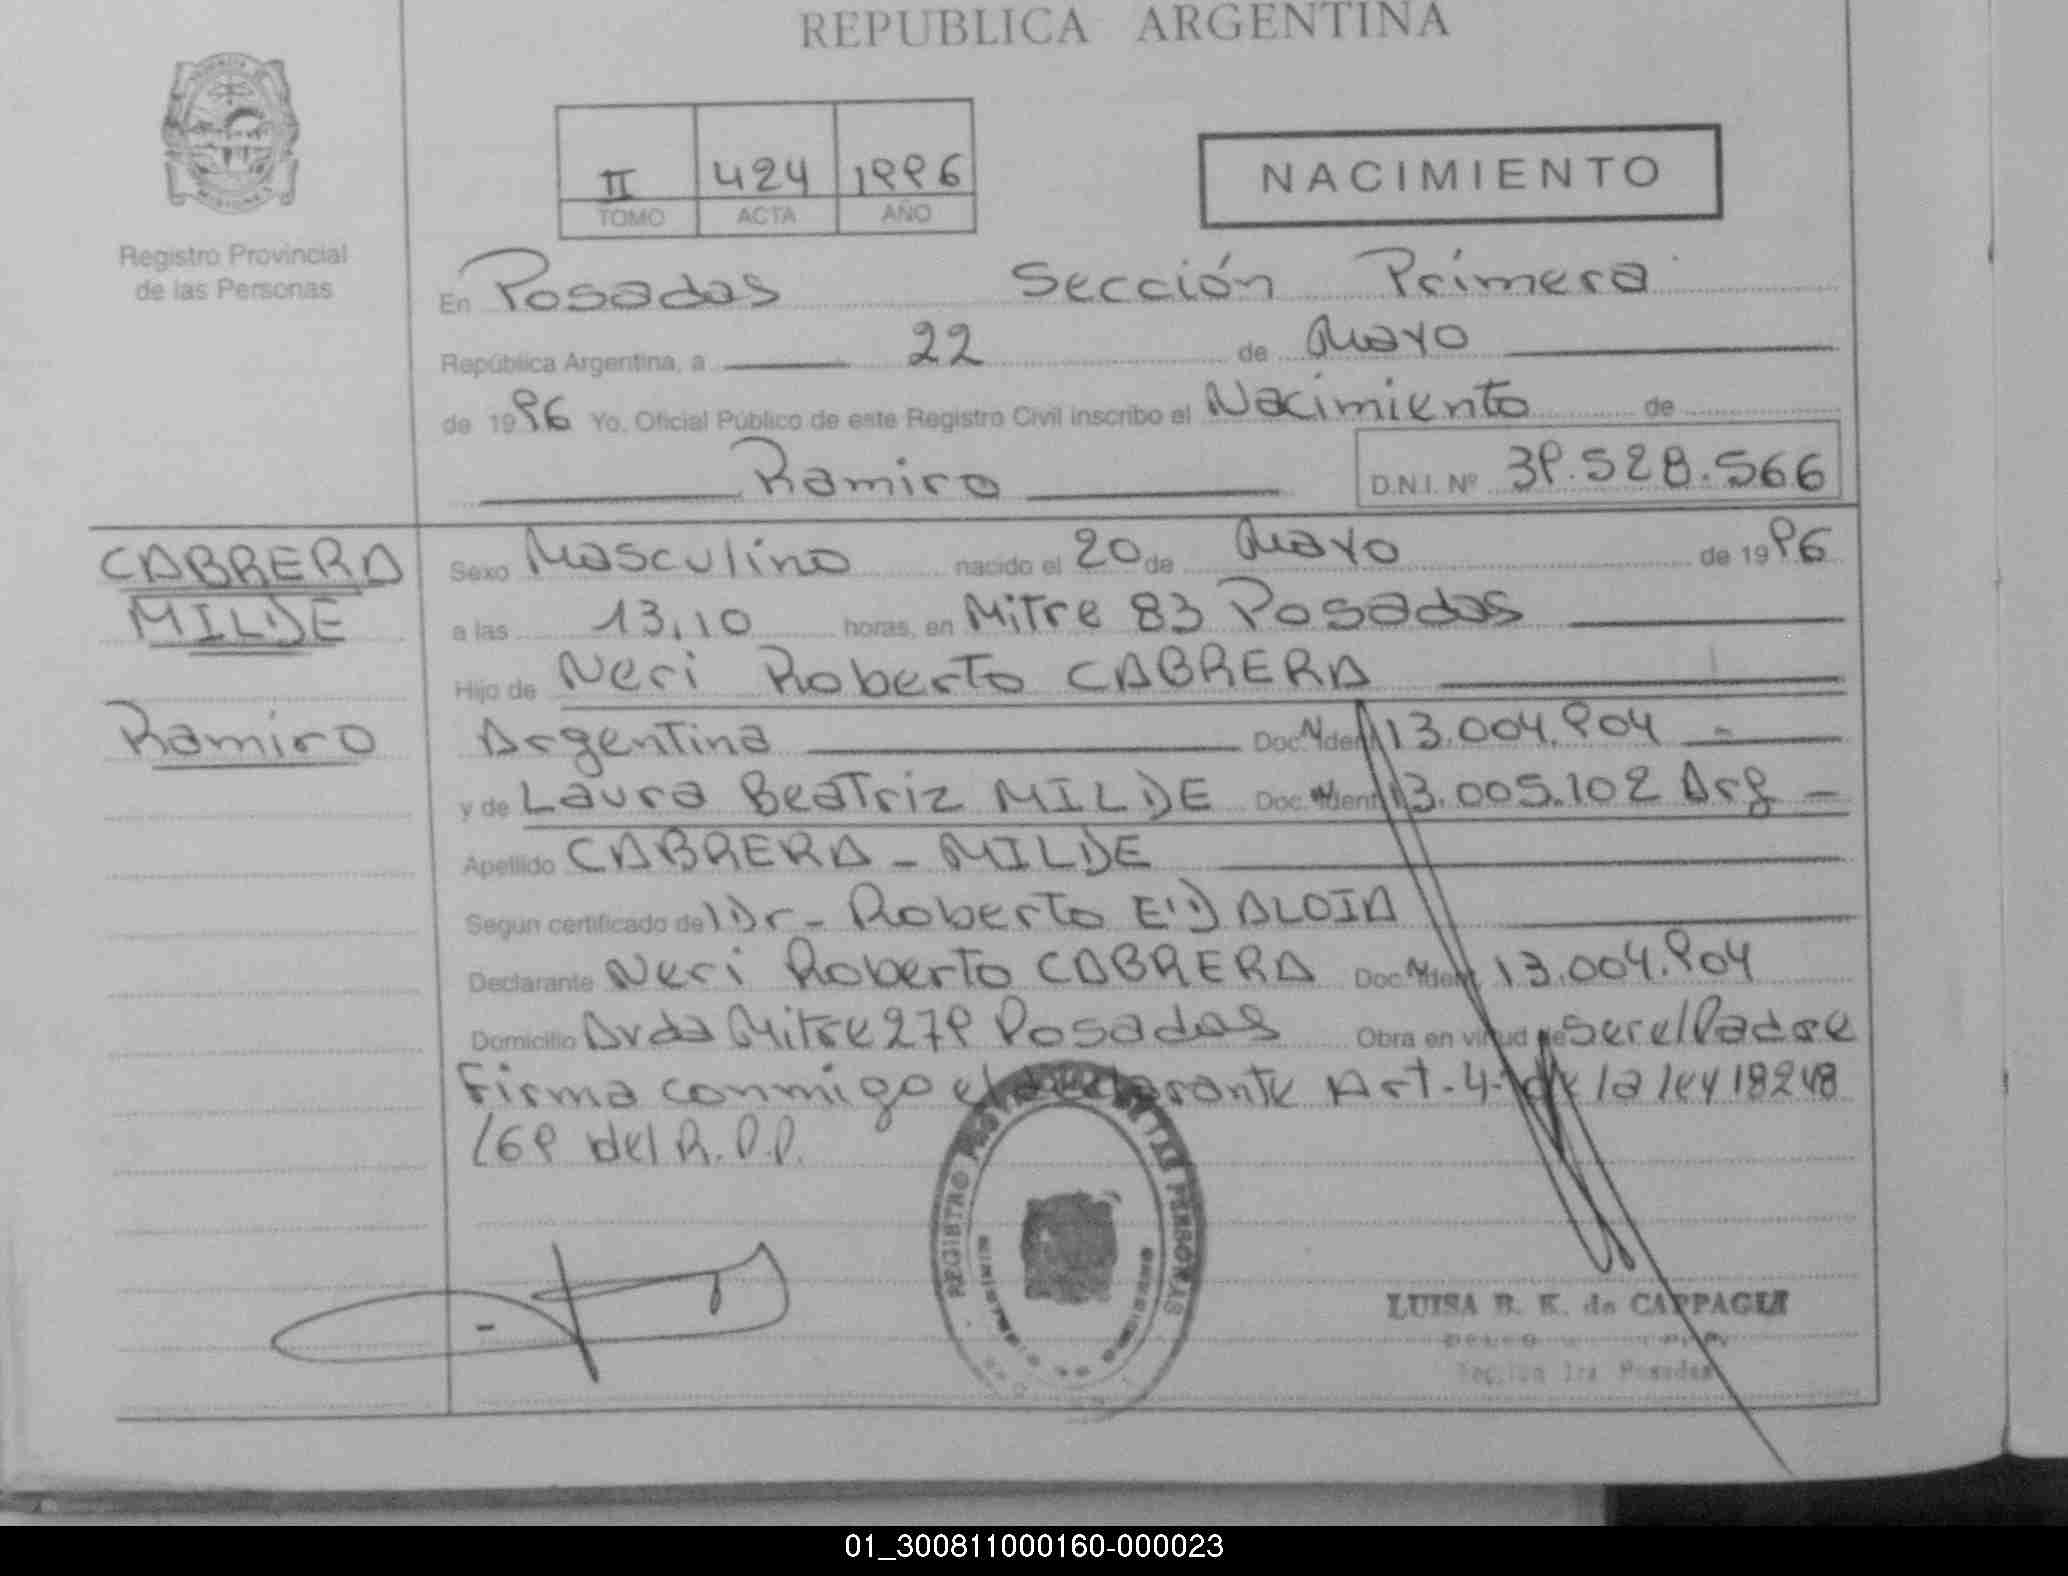 REPUBLICA ARGENTINA
II 424 1996
TOMO ACTA AÑO
NACIMIENTO
Registro Provincial
de las Personas
En Posadas Sección Primera
República Argentina, a 22 de Mayo
de 1996 Yo, Oficial Público de este Registro Civil inscribo el Nacimiento de
Ramiro D.N.I. Nº 39.528.566
CABRERA
MILDE
Ramiro
Sexo Masculino nacido el 20 de Mayo de 1996
a las 13,10 horas, en Mitre 83 Posadas
Hijo de Neri Roberto CABRERA
Argentina Doc. Ident. 13.004.904
y de Laura Beatriz MILDE Doc. Ident. 13.005.102 Arg
Apellido CABRERA - MILDE
Según certificado de Dr - Roberto E. D ALOIA
Declarante Neri Roberto CABRERA Doc. Ident. 13.004.904
Domicilio Avda Mitre 279 Posadas Obra en virtud de ser el Padre
Firma conmigo el declarante Art. 4º de la ley 18248
/69 del R.P.P.
REGISTRO PROVINCIAL DE LAS PERSONAS
LUISA B. K. de CAPPAGLI
Sección 1ra Posadas
01_300811000160-000023